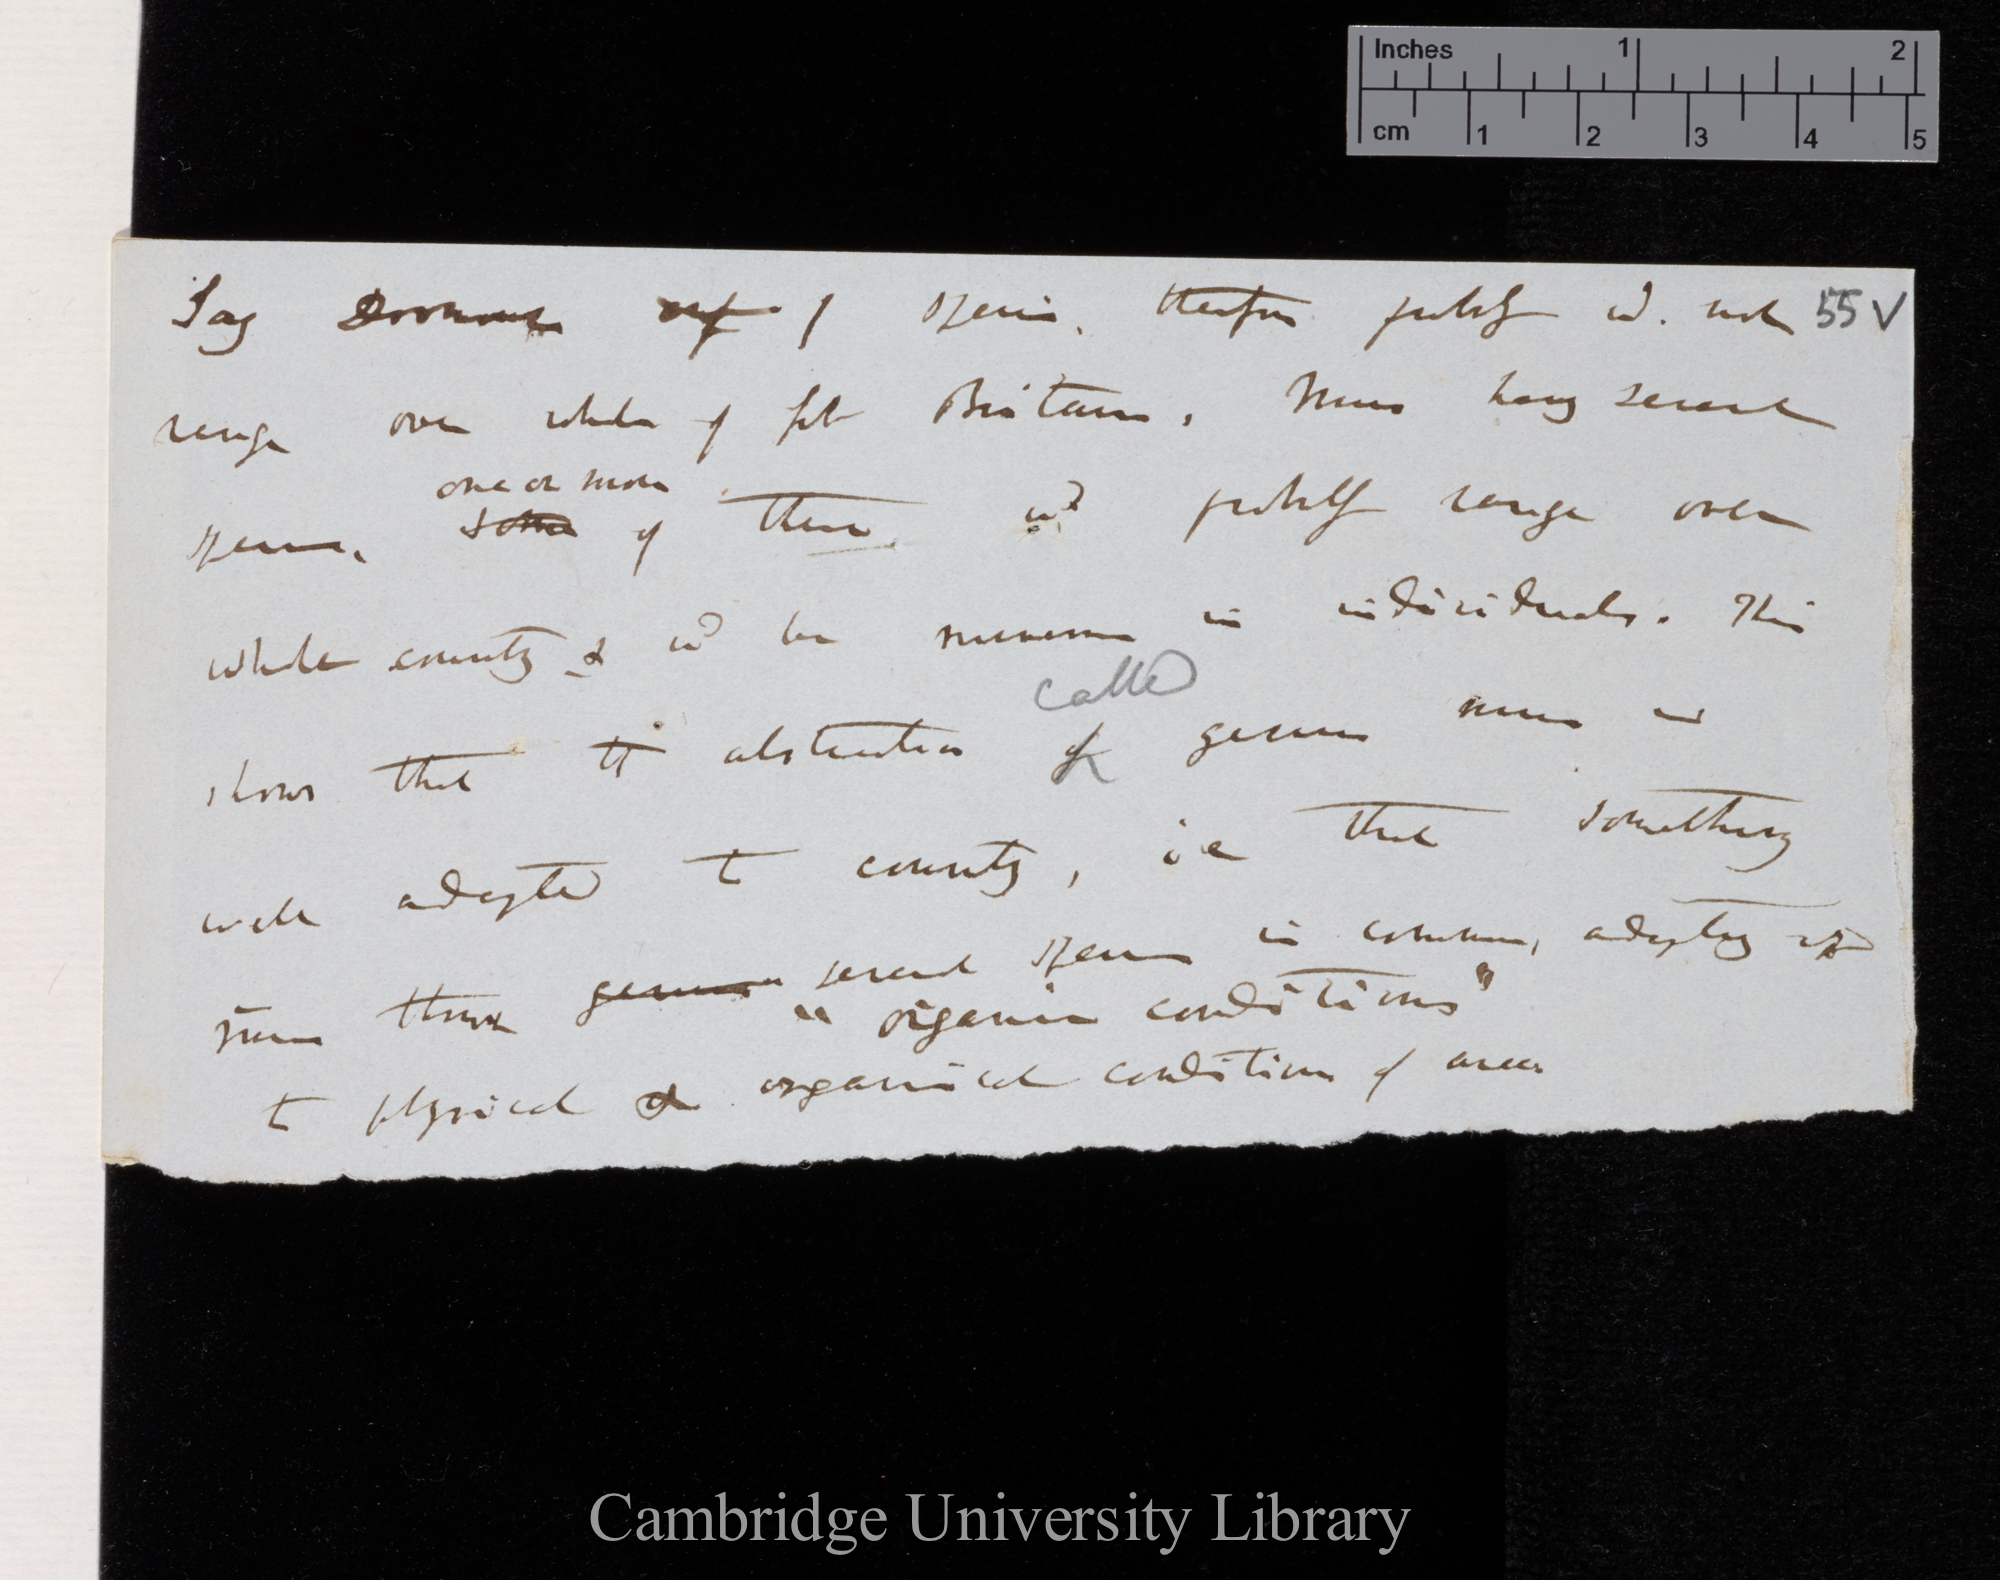 Inches 1 2
cm 1 2 3 4 5
Say of species, therefore probably wd. not 55 V
range over whole of Gt Britain. Mus having several
one or more
species, some of these wd probably range over
whole country & wd be numerous in individuals. This
called
shows that the abstraction of genus mus is
well adapted to country, i.e that something
from those genus several species in common, adapting
"organic conditions"
to physical & organical conditions of area
Cambridge University Library